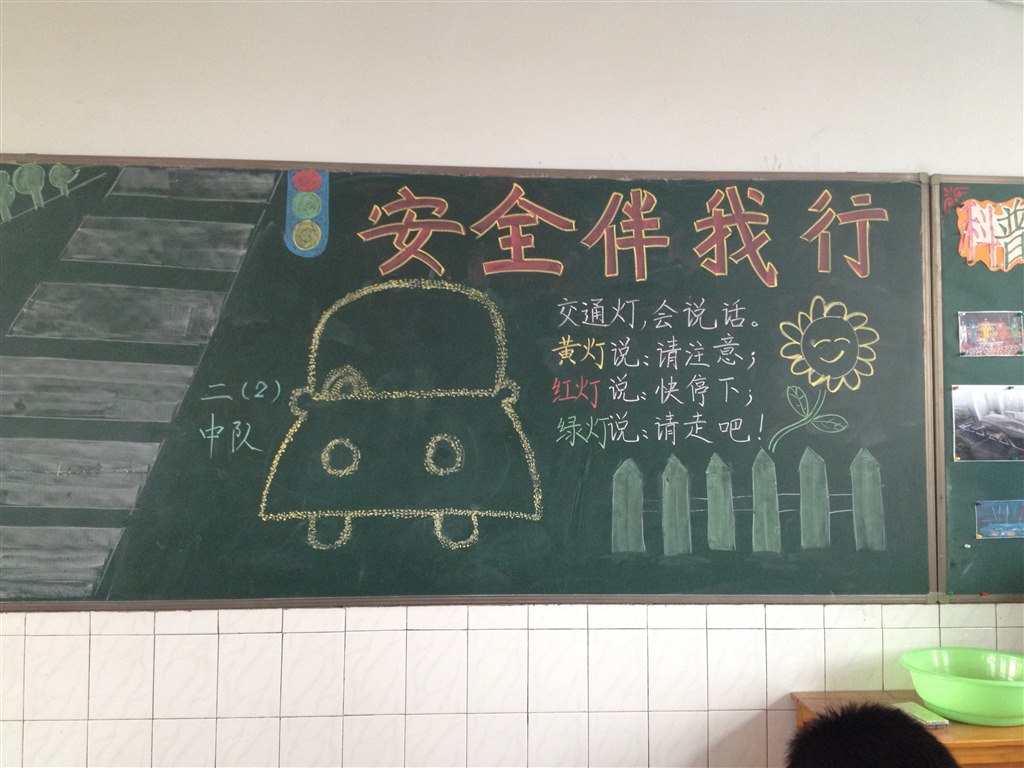 安全伴我行
交通灯,会说话。
黄灯说:请注意;
红灯说:快停下;
绿灯说:请走吧!
二(2)
中队
科普